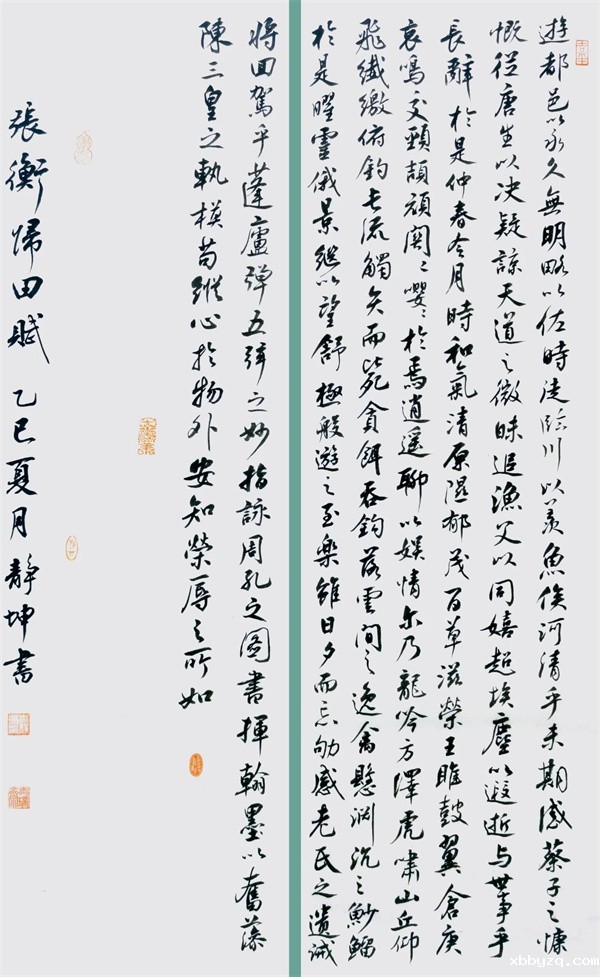 遊都邑以永久無明略以佐時徒臨川以羨魚俟河清乎未期感蔡子之慷
慨從唐生以决疑諒天道之微昧追漁父以同嬉超埃塵以遐逝與世事乎
長辭於是仲春令月時和氣清原隰郁茂百草滋榮王雎鼓翼倉庚
哀鳴交頸頡頏關〻嚶〻於焉逍遙聊以娛情尔乃龍吟方澤虎嘯山丘仰
飛纖繳俯釣長流觸矢而毙貪餌吞鉤落雲間之逸禽懸淵沉之魦鰡
於是曜靈俄景繼以望舒極般遊之至樂雖日夕而忘劬感老氏之遺誡
將回駕乎蓬廬彈五弦之妙指詠周孔之圖書揮翰墨以奮藻
陳三皇之軌模苟縱心於物外安知榮辱之所如
張衡歸田賦 乙巳夏月靜坤書
xbbyzq.com